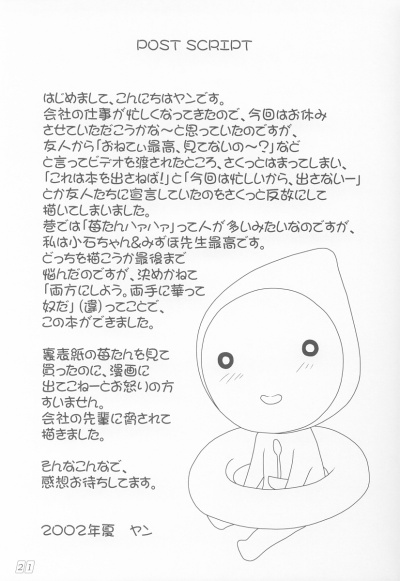 POST SCRIPT
はじめまして、こんにちはヤンです。
会社の仕事が忙しくなってきたので、今回はお休み
させていただこうかな〜と思っていたのですが、
友人から「おねてぃ最高、見てないの〜?」など
と言ってビデオを渡されたところ、さくっとはまってしまい、
「これは本を出さねば!」と「今回は忙しいから、出さないー」
とか友人たちに宣言していたのをさくっと反故にして
描いてしまいました。
巷では「苺たんハァハァ」って人が多いみたいなのですが、
私は小石ちゃん&みずほ先生最高です。
どっちを描こうか最後まで
悩んだのですが、決めかねて
「両方にしよう。両手に華って
奴だ」(違)ってことで、
この本ができました。
裏表紙の苺たんを見て
買ったのに、漫画に
出てこねーとお怒りの方
すいません。
会社の先輩に脅されて
描きました。
そんなこんなで、
感想お待ちしてます。
2002年夏 ヤン
21